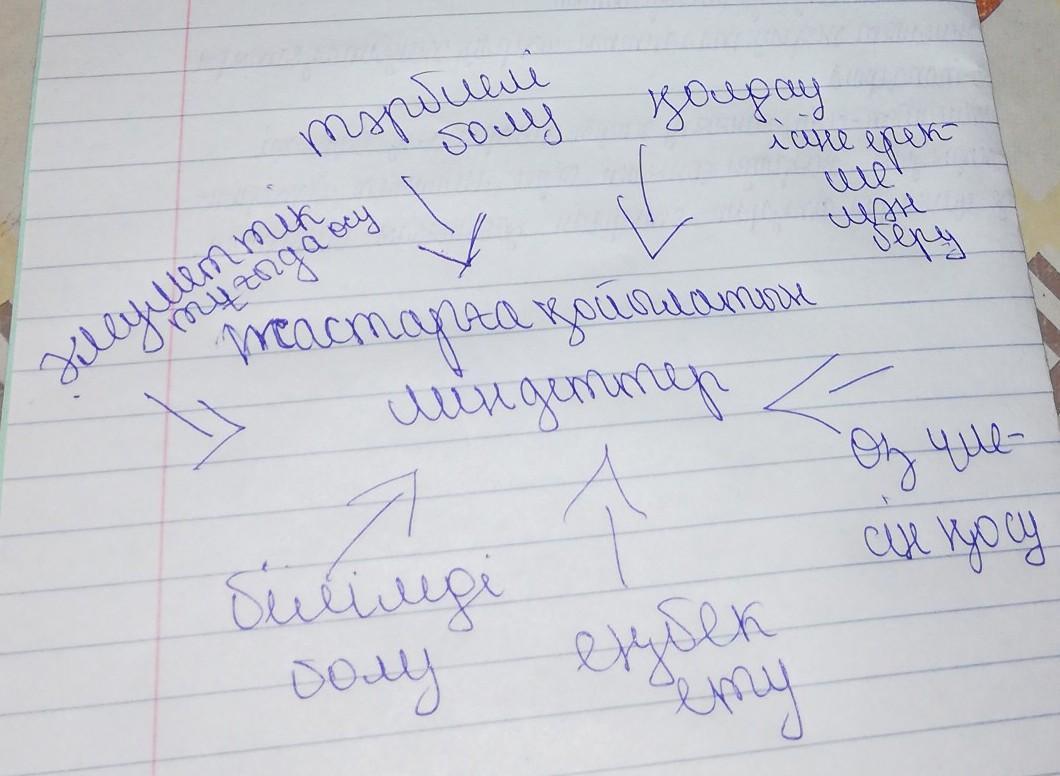 тәрбиелі
болу
қолдау
ісіне ерек-
ше
мән
беру
әлеуметтік
тұғыда өсу
жастарға қойылатын
миндеттер
өз үле-
сін қосу
білімді
болу
еңбек
ету